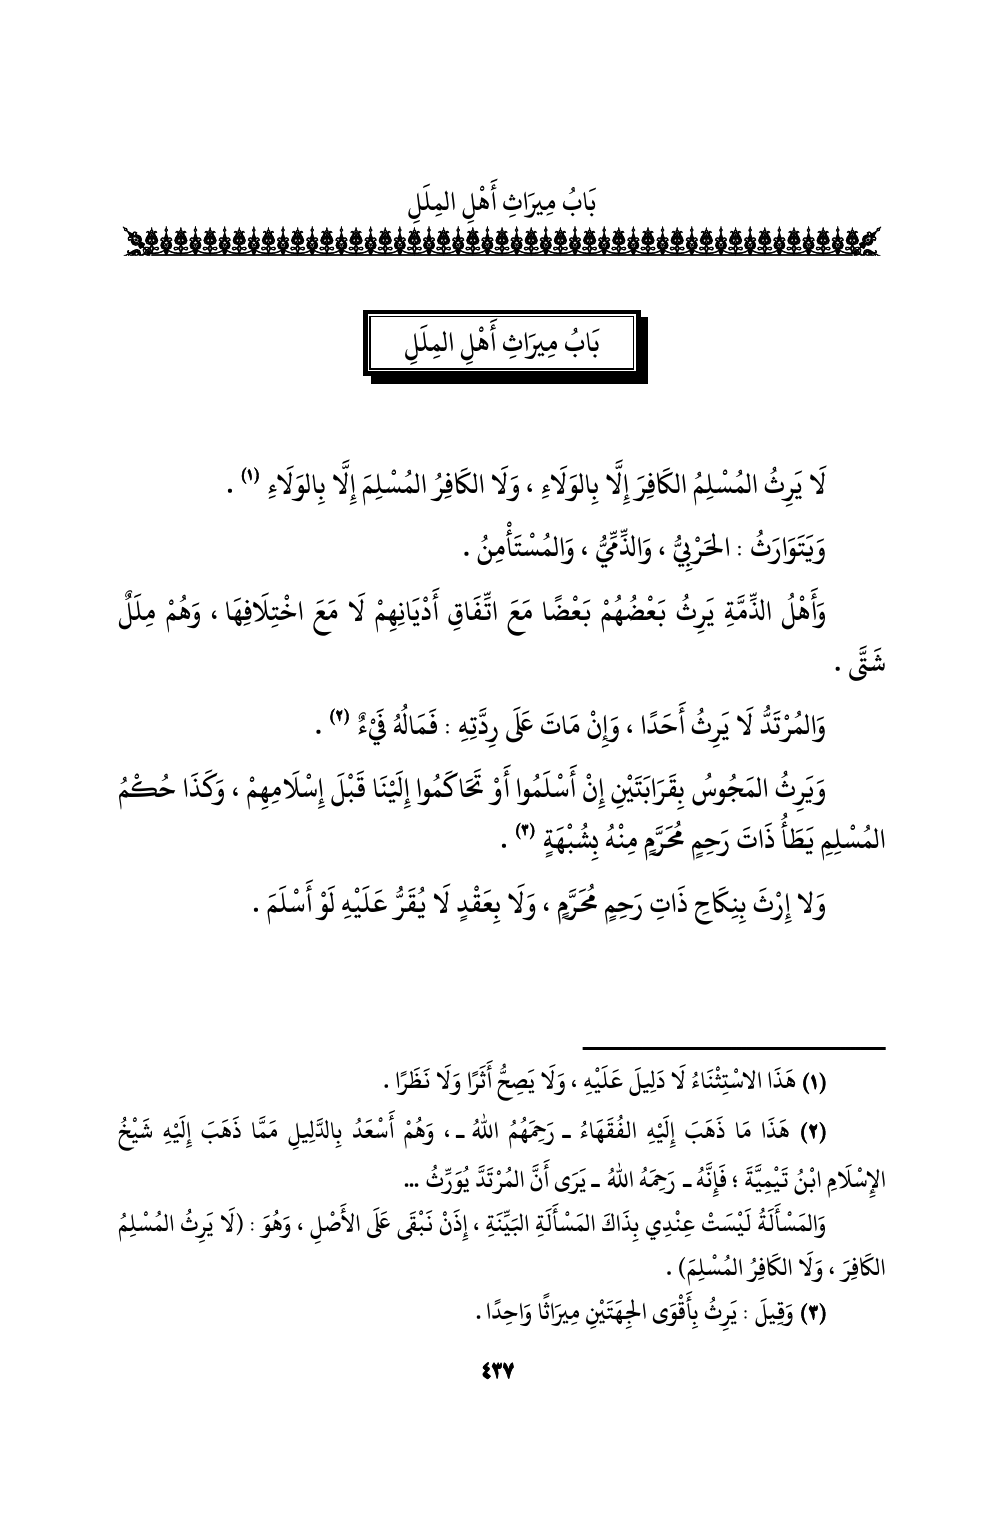 بَابُ مِيرَاثِ أَهْلِ المِلَلِ
بَابُ مِيرَاثِ أَهْلِ المِلَلِ
لَا يَرِثُ المُسْلِمُ الكَافِرَ إِلَّا بِالوَلَاءِ ، وَلَا الكَافِرُ المُسْلِمَ إِلَّا بِالوَلَاءِ (١) .
وَيَتَوَارَثُ : الحَرْبِيُّ ، وَالذِّمِّيُّ ، وَالمُسْتَأْمِنُ .
وَأَهْلُ الذِّمَّةِ يَرِثُ بَعْضُهُمْ بَعْضًا مَعَ اتِّفَاقِ أَدْيَانِهِمْ لَا مَعَ اخْتِلَافِهَا ، وَهُمْ مِلَلٌ
شَتَّى .
وَالمُرْتَدُّ لَا يَرِثُ أَحَدًا ، وَإِنْ مَاتَ عَلَى رِدَّتِهِ : فَمَالُهُ فَيْءٌ (٢) .
وَيَرِثُ المَجُوسُ بِقَرَابَتَيْنِ إِنْ أَسْلَمُوا أَوْ تَحَاكَمُوا إِلَيْنَا قَبْلَ إِسْلَامِهِمْ ، وَكَذَا حُكْمُ
المُسْلِمِ يَطَأُ ذَاتَ رَحِمٍ مُحَرَّمٍ مِنْهُ بِشُبْهَةٍ (٣) .
وَلا إِرْثَ بِنِكَاحِ ذَاتِ رَحِمٍ مُحَرَّمٍ ، وَلَا بِعَقْدٍ لَا يُقَرُّ عَلَيْهِ لَوْ أَسْلَمَ .
(١) هَذَا الاسْتِثْنَاءُ لَا دَلِيلَ عَلَيْهِ ، وَلَا يَصِحُّ أَثَرًا وَلَا نَظَرًا .
(٢) هَذَا مَا ذَهَبَ إِلَيْهِ الفُقَهَاءُ ـ رَحِمَهُمُ اللهُ ـ ، وَهُمْ أَسْعَدُ بِالدَّلِيلِ مَمَّا ذَهَبَ إِلَيْهِ شَيْخُ
الإِسْلَامِ ابْنُ تَيْمِيَّةَ ؛ فَإِنَّهُ ـ رَحِمَهُ اللهُ ـ يَرَى أَنَّ المُرْتَدَّ يُوَرِّثُ ...
وَالمَسْأَلَةُ لَيْسَتْ عِنْدِي بِذَاكَ المَسْأَلَةِ البَيِّنَةِ ، إِذَنْ نَبْقَى عَلَى الأَصْلِ ، وَهُوَ : (لَا يَرِثُ المُسْلِمُ
الكَافِرَ ، وَلَا الكَافِرُ المُسْلِمَ) .
(٣) وَقِيلَ : يَرِثُ بِأَقْوَى الجِهَتَيْنِ مِيرَاثًا وَاحِدًا .
٤٣٧